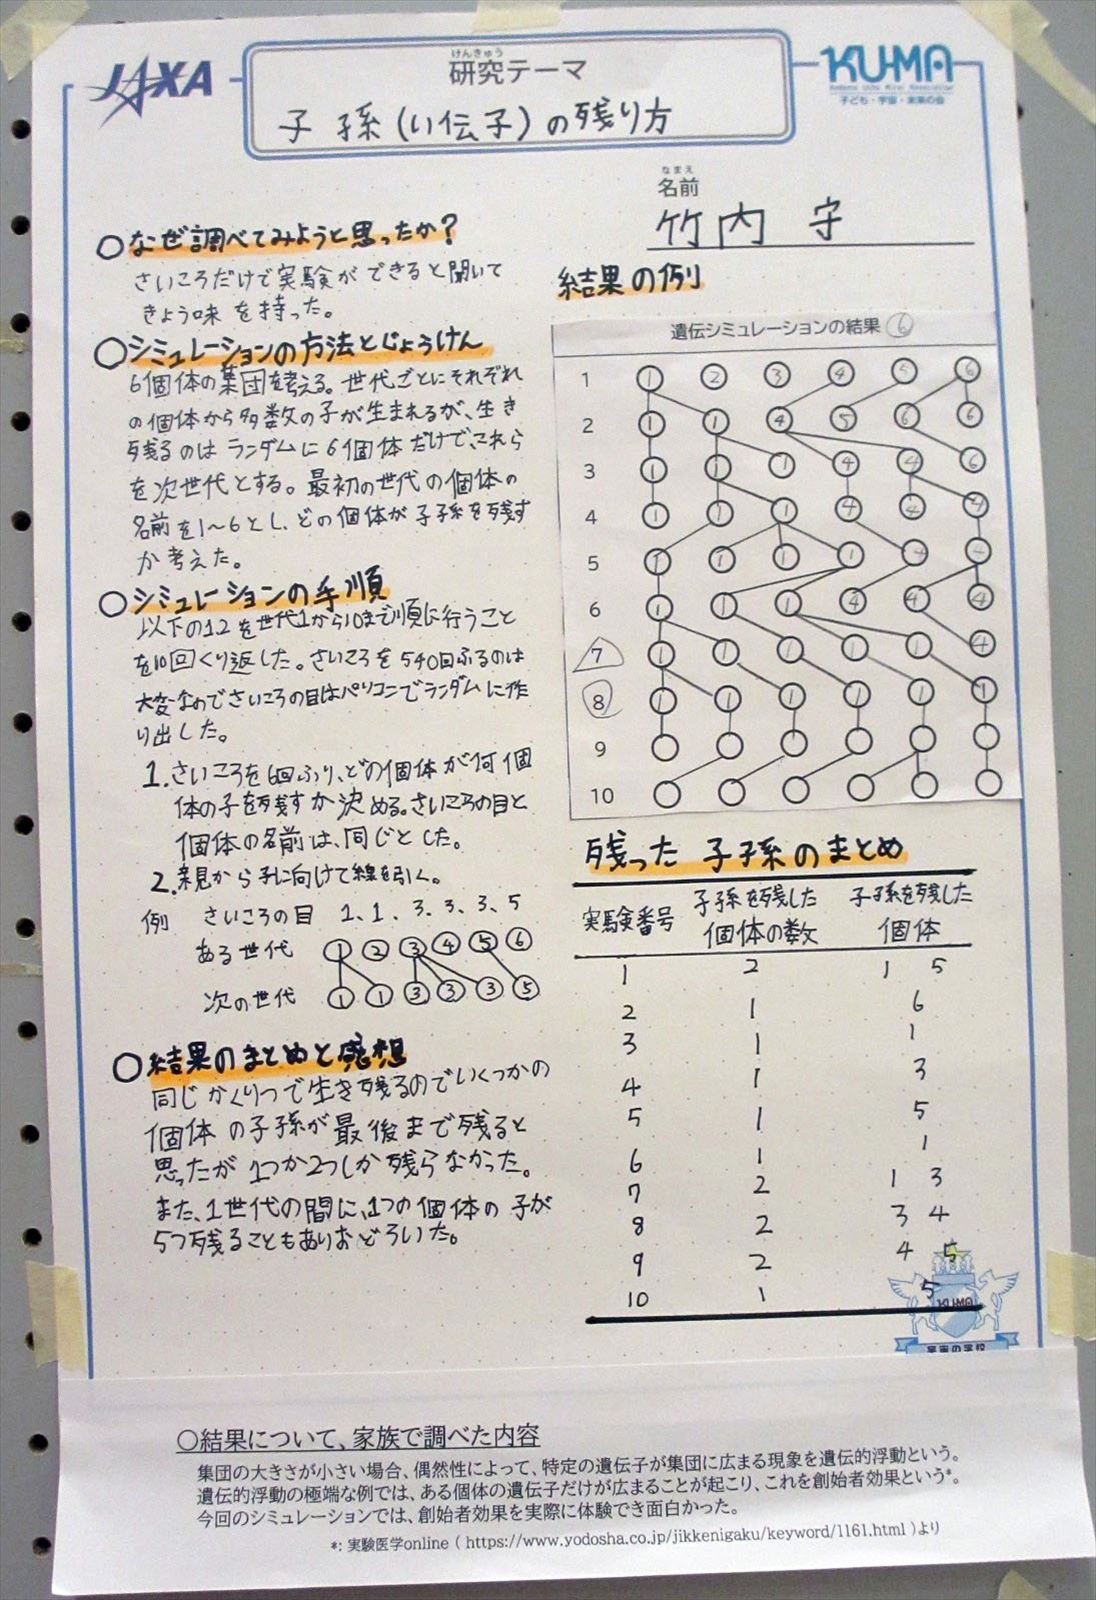 JAXA
けんきゅう
研究テーマ
子孫(い伝子)の残り方
KU-MA
子ども・宇宙・未来の会
なまえ
名前
竹内 守
○なぜ調べてみようと思ったか?
さいころだけで実験ができると聞いて
きょう味を持った。
○シミュレーションの方法とじょうけん
6個体の集団を考える。世代ごとにそれぞれ
の個体から多数の子が生まれるが、生き
残るのはランダムに6個体だけで、これら
を次世代とする。最初の世代の個体の
名前を1~6とし、どの個体が子孫を残す
か考えた。
○シミュレーションの手順
以下の1.2を世代1から10まで順に行うこと
を10回くり返した。さいころを540回ふるのは
大変なのでさいころの目はパソコンでランダムに作
り出した。
1.さいころを6回ふり、どの個体が何個
体の子を残すか決める。さいころの目と
個体の名前は、同じとした。
2.親から子に向けて線を引く。
例 さいころの目 1、1、3、3、3、5
ある世代 1 2 3 4 5 6
次の世代 1 1 3 3 3 5
○結果のまとめと感想
同じかくりつで生き残るのでいくつかの
個体の子孫が最後まで残ると
思ったが1つか2つしか残らなかった。
また、1世代の間に、1つの個体の子が
5つ残ることもありおどろいた。
結果の例
遺伝シミュレーションの結果 6
1 1 2 3 4 5 6
2 1 1 4 5 6 6
3 1 1 1 4 4 6
4 1 1 1 4 4 4
5 1 1 1 1 4 4
6 1 1 1 4 4 4
7 1 1 1 1 1 4
8 1 1 1 1 1 1
9
10
残った子孫のまとめ
実験番号 子孫を残した個体の数 子孫を残した個体
1 2 1 5
2 1 6
3 1 1
4 1 3
5 1 5
6 1 1
7 2 1 3
8 2 3 4
9 2 4 5
10 1 5
KU-MA
宇宙の学校
○結果について、家族で調べた内容
集団の大きさが小さい場合、偶然性によって、特定の遺伝子が集団に広まる現象を遺伝的浮動という。
遺伝的浮動の極端な例では、ある個体の遺伝子だけが広まることが起こり、これを創始者効果という*。
今回のシミュレーションでは、創始者効果を実際に体験でき面白かった。
*: 実験医学online ( https://www.yodosha.co.jp/jikkenigaku/keyword/1161.html )より